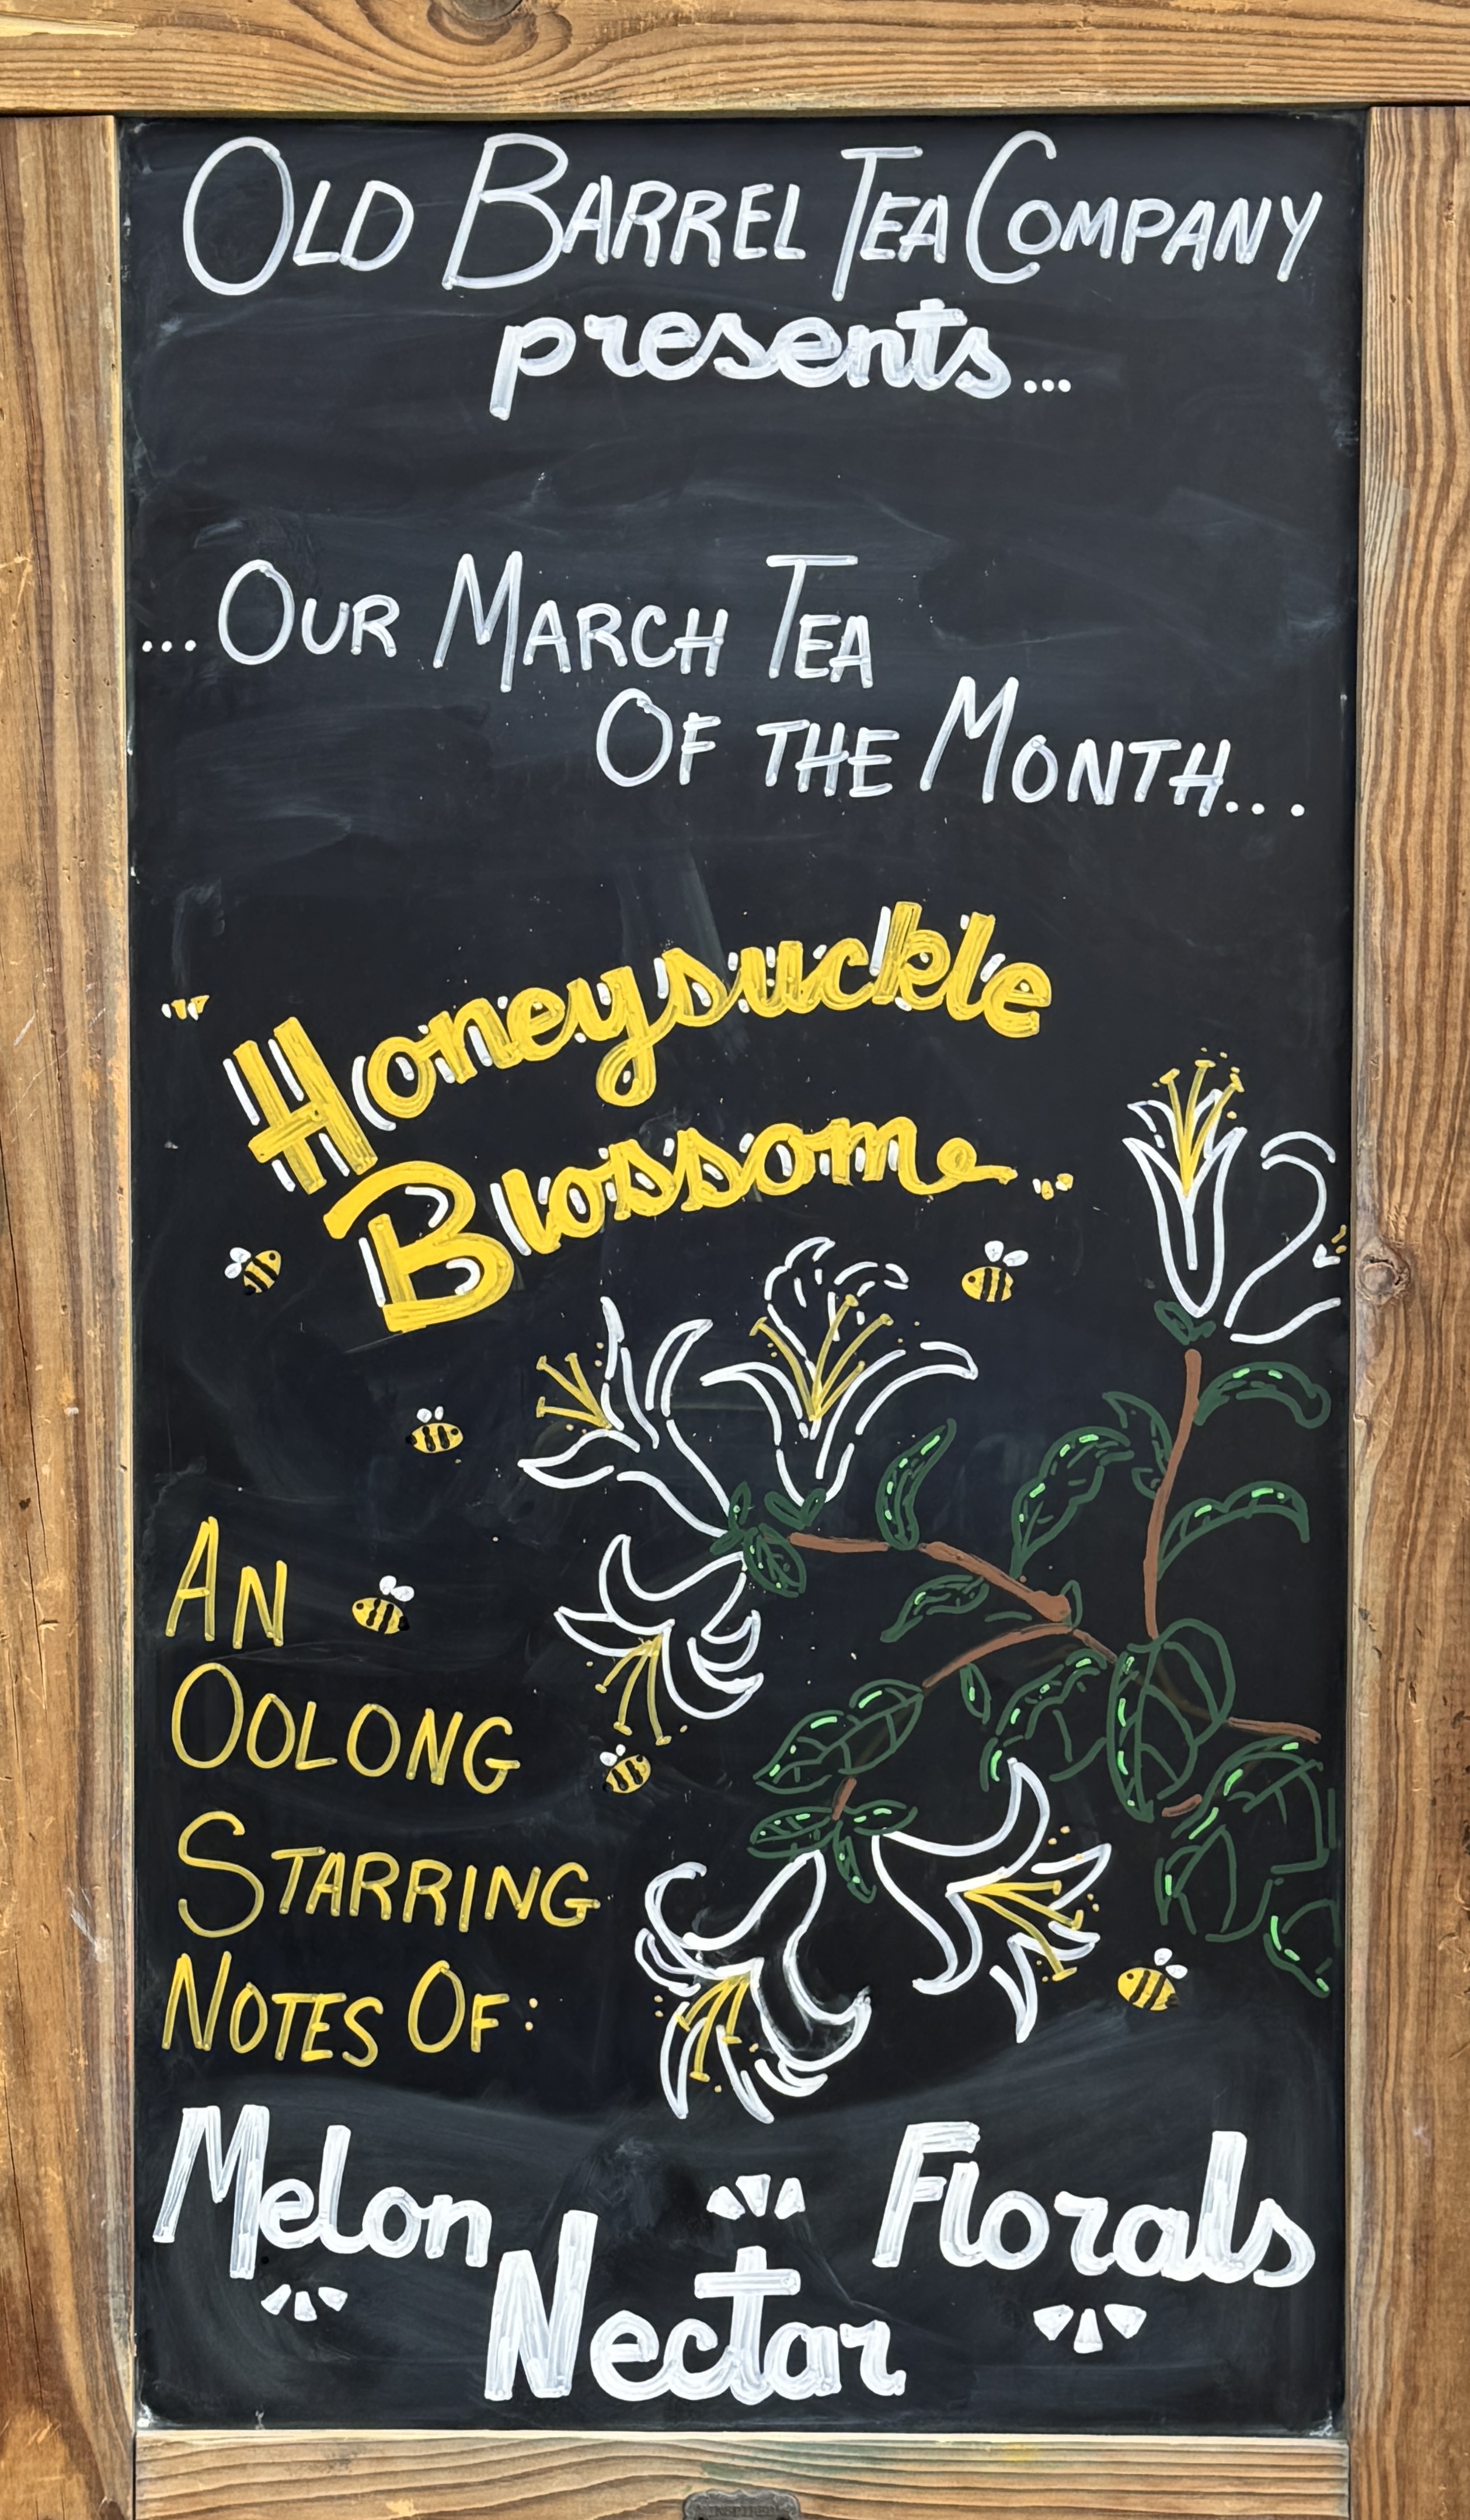 OLD BARREL TEA COMPANY
presents...
...OUR MARCH TEA
OF THE MONTH...
...Honeysuckle
Blossom...
AN
OOLONG
STARRING
NOTES OF:
Melon
Nectar
Florals